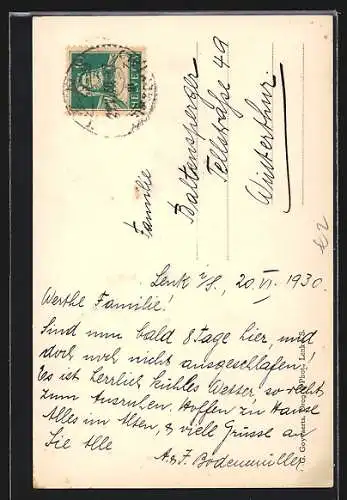 Familie
Baltensperger
Tellstraße 49
Winterthur
Lenk i/S., 20. VI. 1930.
Werthe Familie!
Sind nun bald 8 Tage hier, und
doch noch nicht ausgeschlafen!
Es ist herrlich kühles Wetter so recht
zum Ausruhen. Hoffen zu Hause
Alles im Alten, & viele Grüsse an
Sie Alle
A. & F. Bodenmüller
HELVETIA
10
Goyvaerts, Photogr., Lenk i/S.